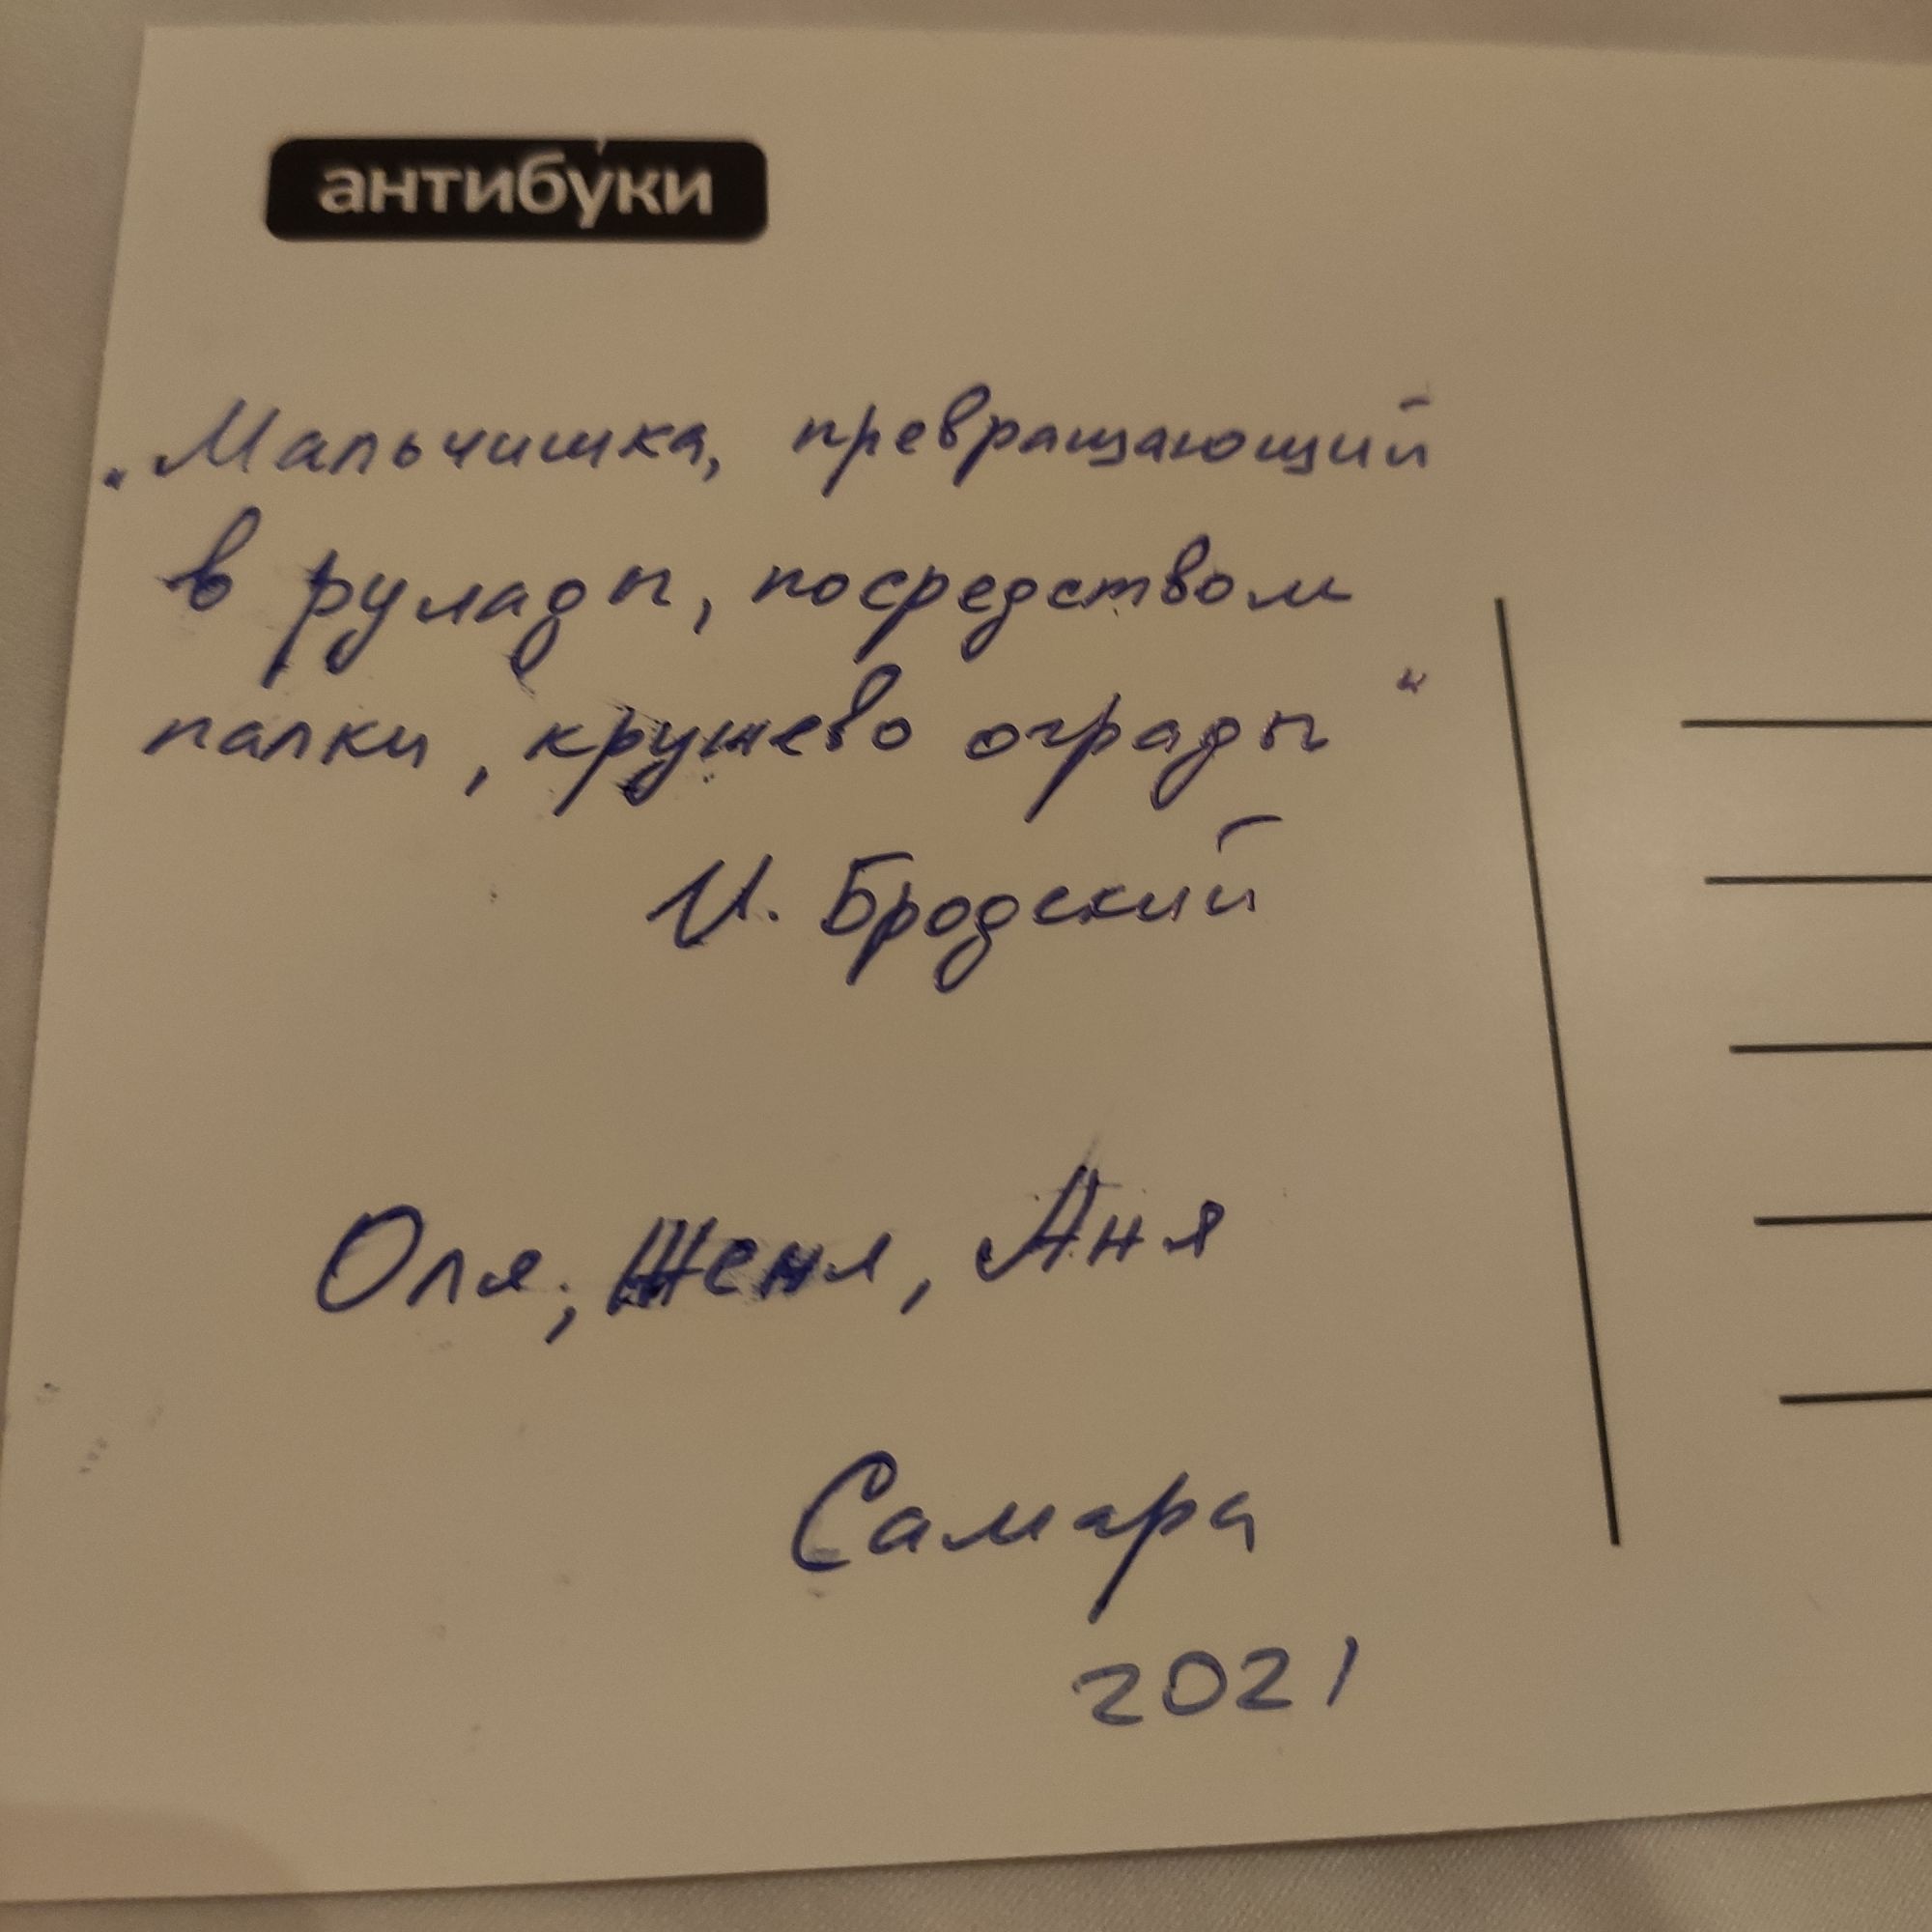 антибуки
„Мальчишка, превращающий
в рулады, посредством
палки, крушево ограды“
И. Бродский
Оля, Женя, Аня
Самара
2021